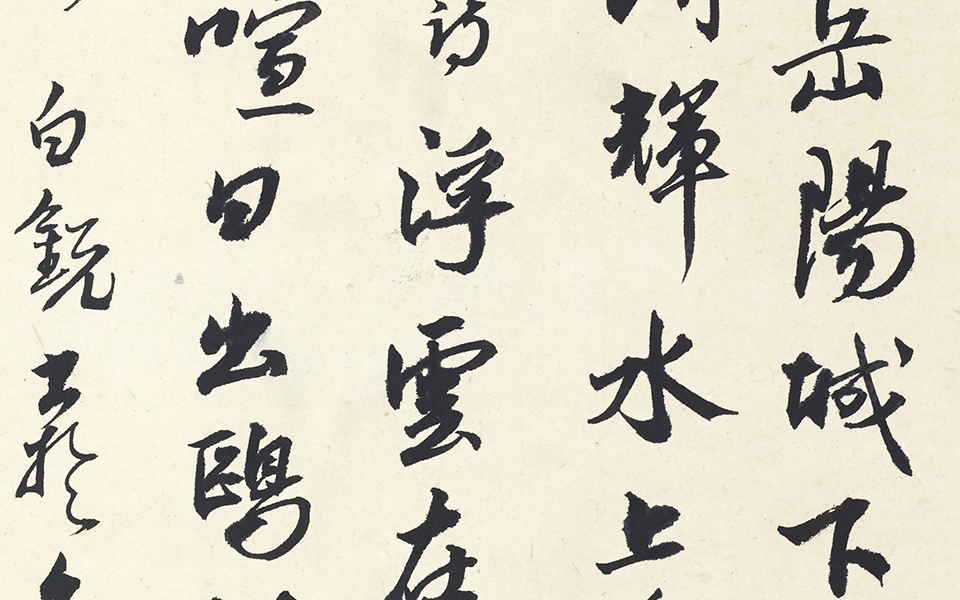 岳陽城下
輝水上
詩浮雲在
喧日出鷗
白銳書於